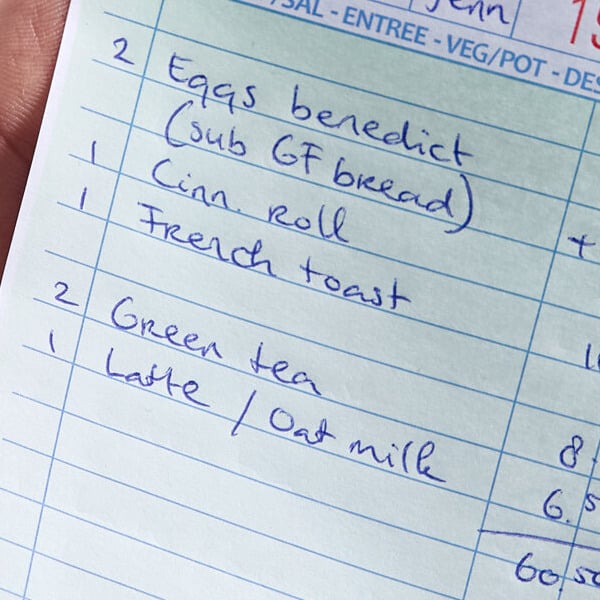 Jenn
SAL - ENTREE - VEG/POT - DES
2 Eggs benedict
(sub GF bread)
1 Cinn. Roll +
1 French toast
2 Green tea 8.
1 Latte / Oat milk 6.5
60.50